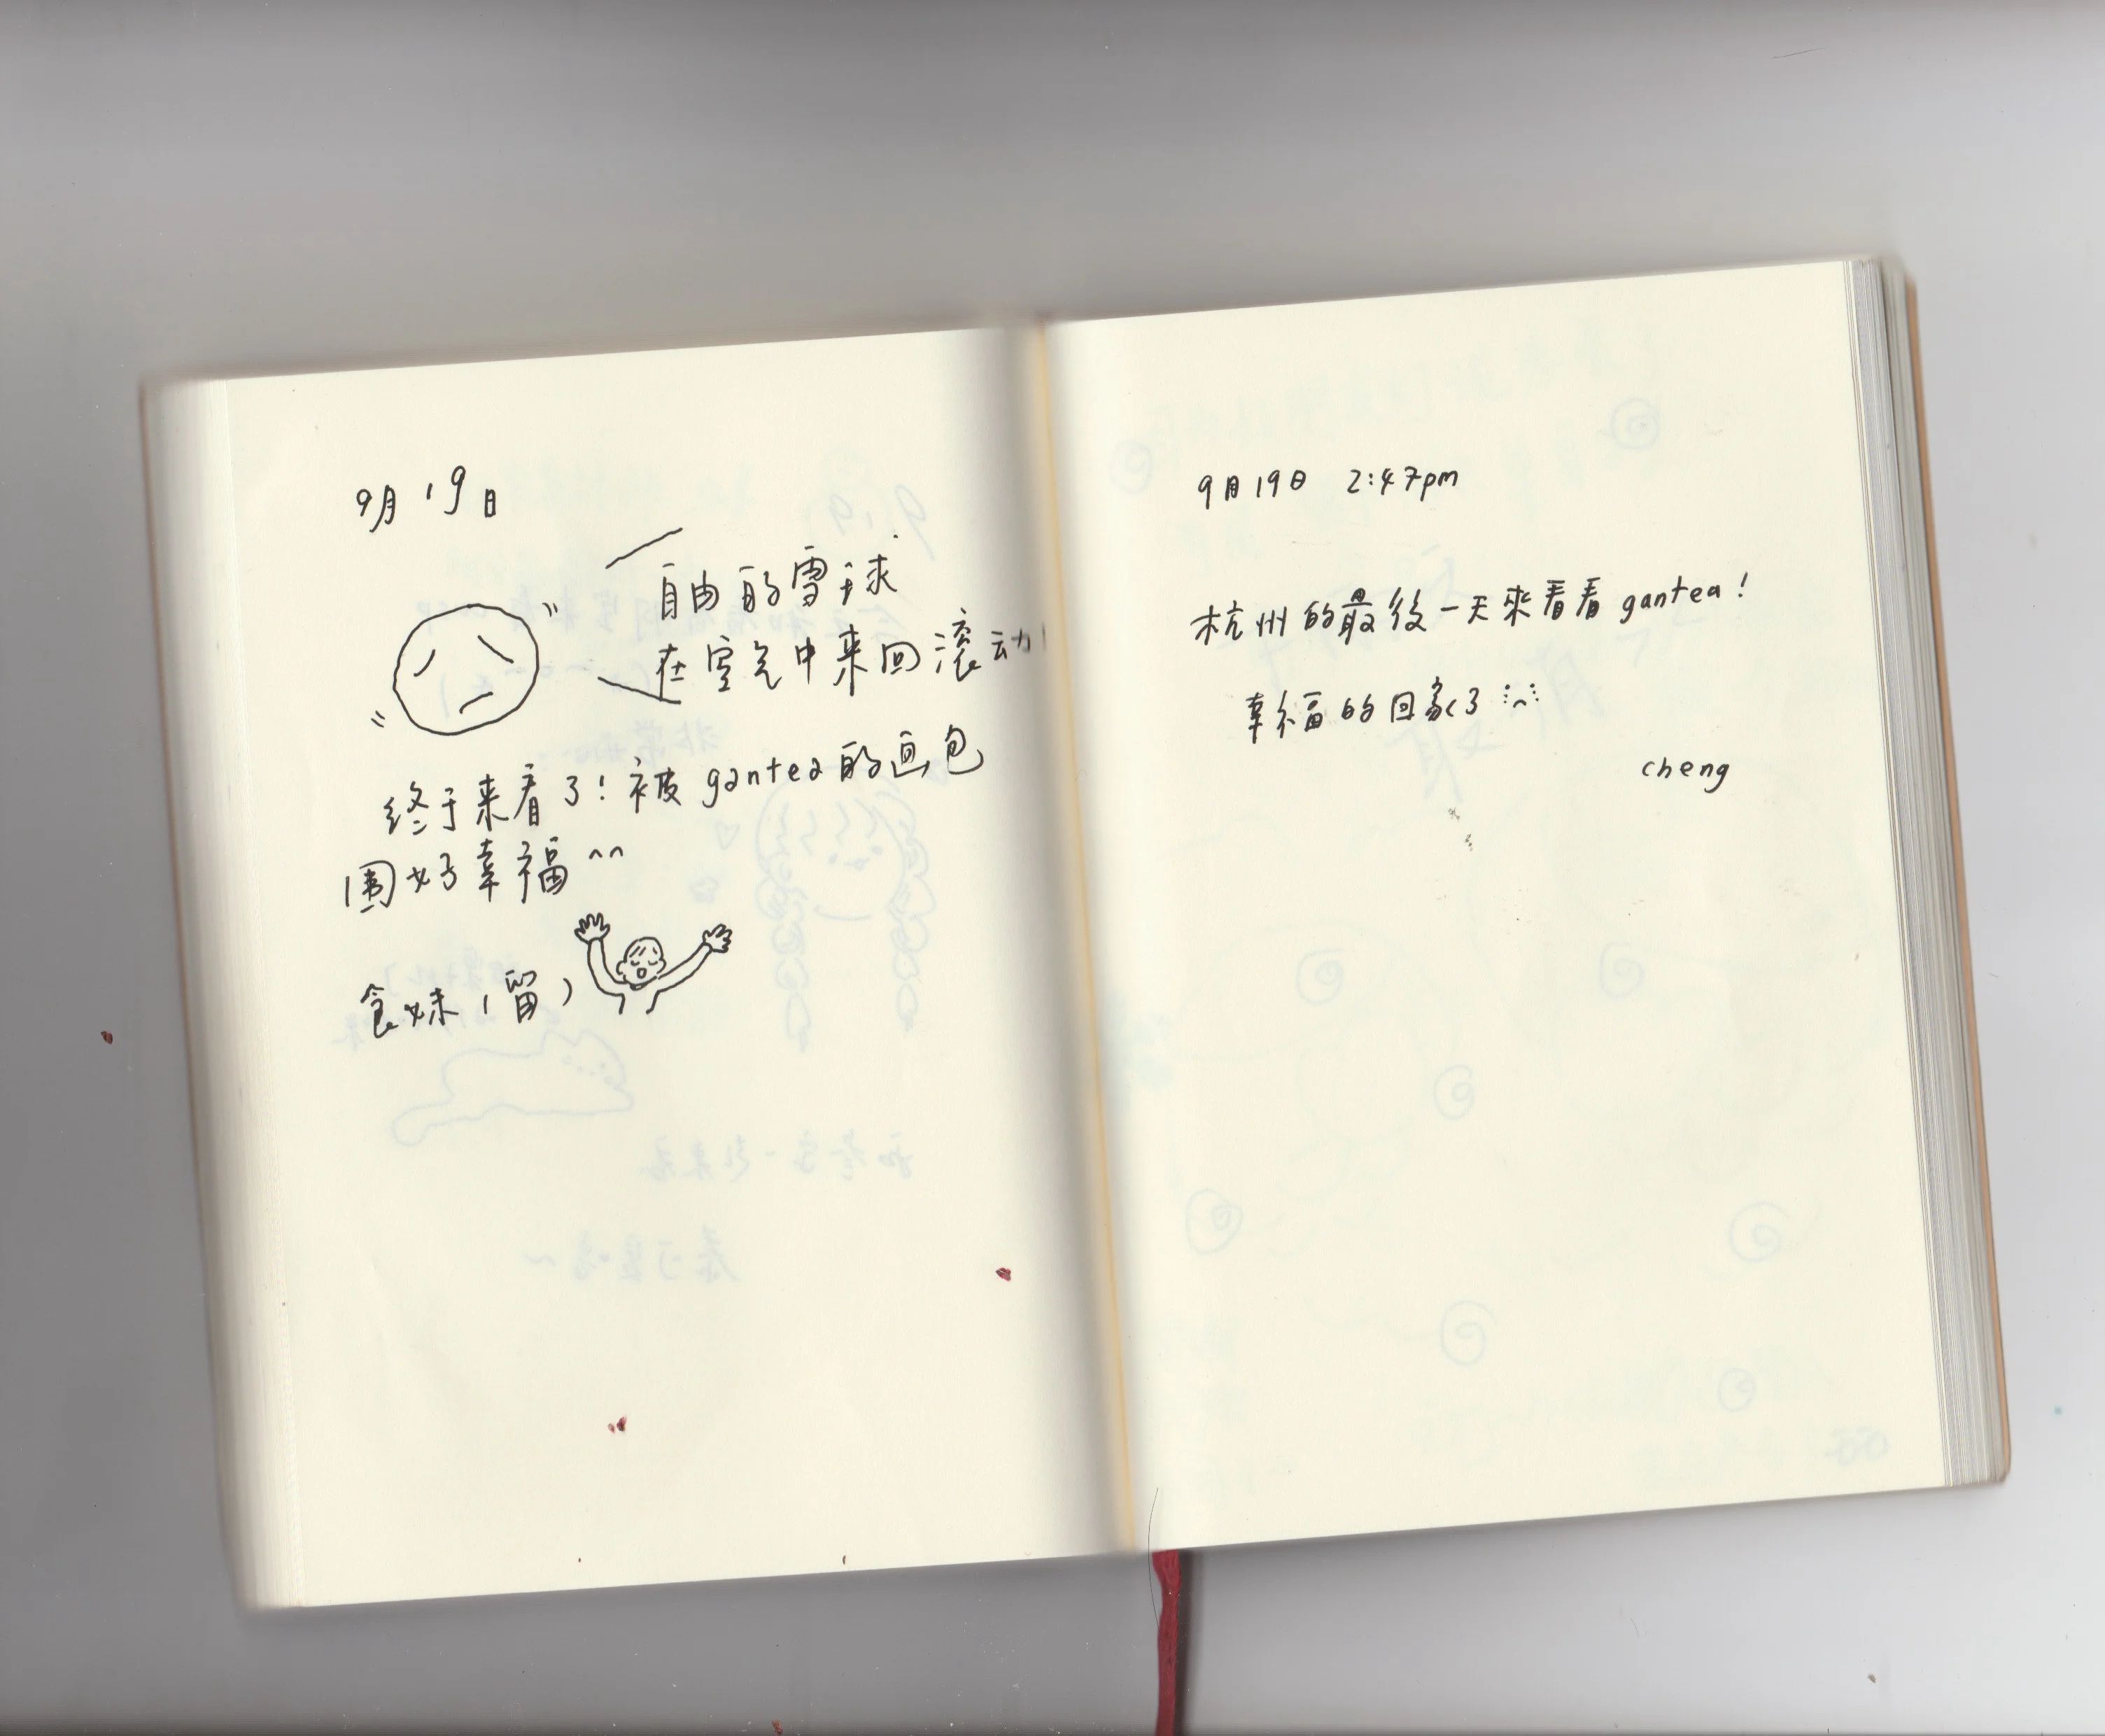 9月19日
自由的雪球
在空气中来回滚动
终于来看了！被gantea的画包
围好幸福^^
食妹（留）
9月19日 2:47pm
杭州的最後一天來看看gantea！
幸福的回家了
cheng